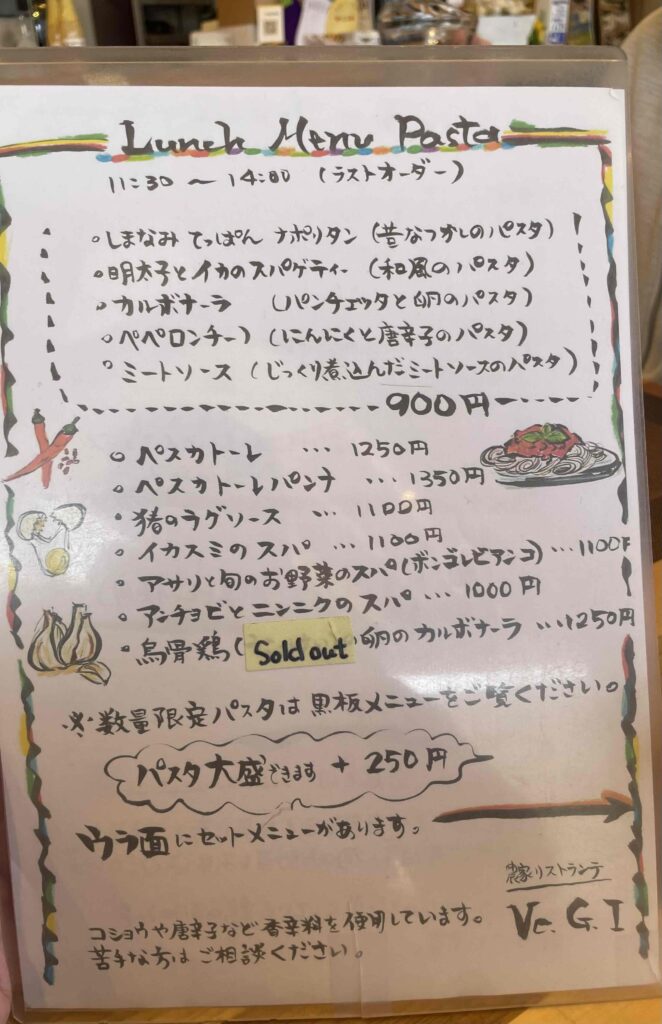 Lunch Menu Pasta
11:30 〜 14:00 (ラストオーダー)
◦しまなみ てっぱん ナポリタン (昔なつかしのパスタ)
◦明太子とイカのスパゲティー (和風のパスタ)
◦カルボナーラ (パンチェッタと卵のパスタ)
◦ペペロンチーノ (にんにくと唐辛子のパスタ)
◦ミートソース (じっくり煮込んだミートソースのパスタ)
900円
◦ペスカトーレ … 1250円
◦ペスカトーレパンナ … 1350円
◦猪のラグソース … 1100円
◦イカスミのスパ … 1100円
◦アサリと旬のお野菜のスパ(ボンゴレビアンコ) … 1100円
◦アンチョビとニンニクのスパ … 1000円
◦烏骨鶏( Sold out )卵のカルボナーラ … 1250円
※数量限定パスタは黒板メニューをご覧ください。
パスタ大盛できます + 250円
ウラ面にセットメニューがあります。
農家リストランテ
Ve. G. I
コショウや唐辛子など香辛料を使用しています。
苦手な方はご相談ください。